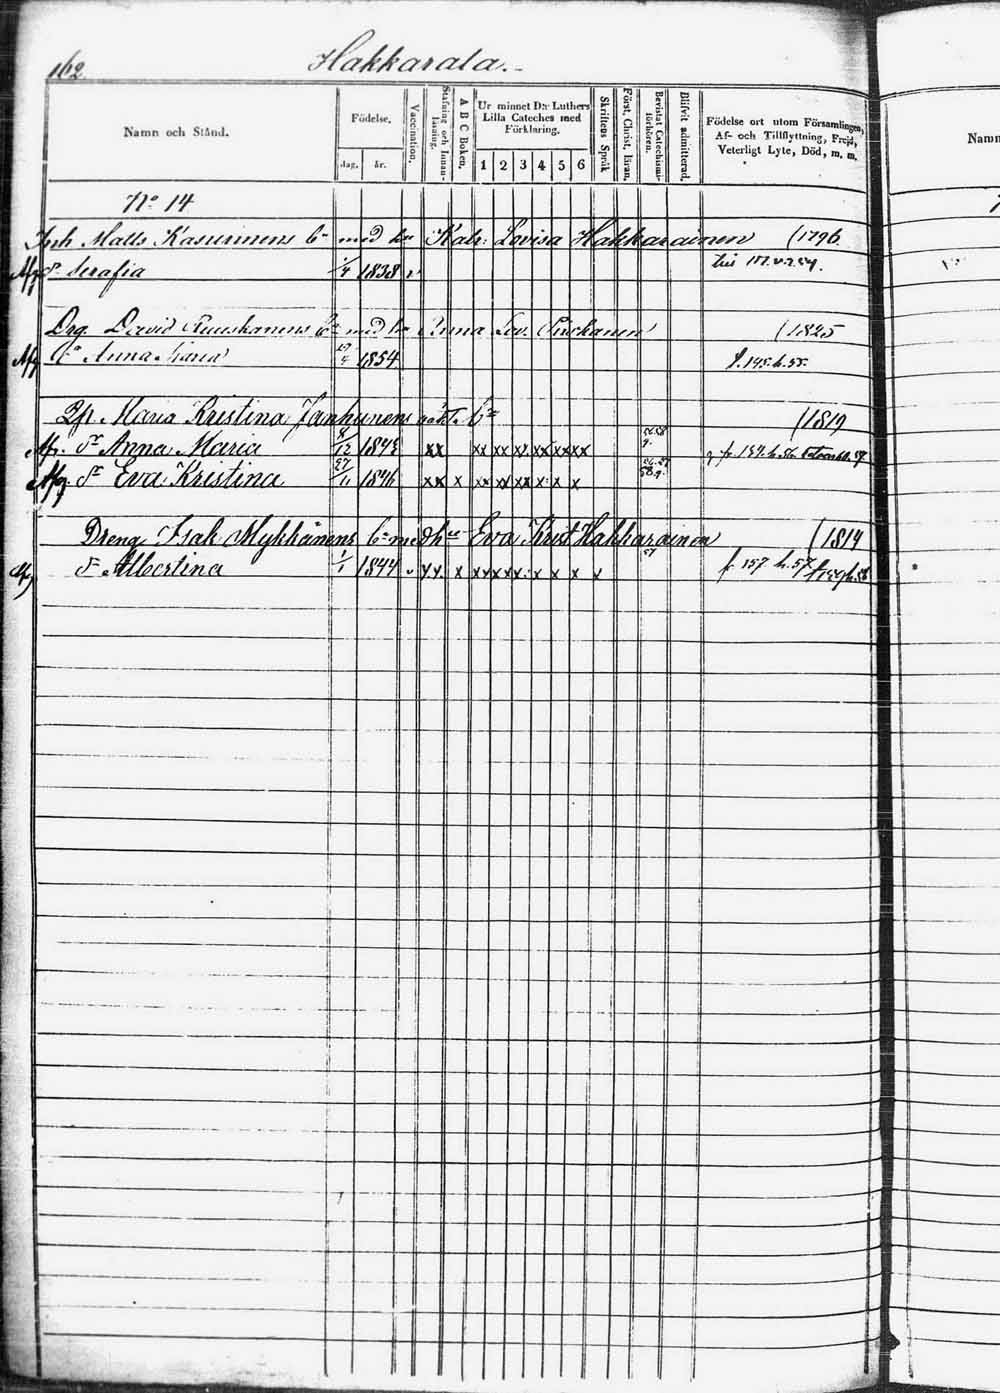 162
Hakkarala.
Namn och Stånd.
Födelse.
dag. år.
Vaccination.
Stafning och Innan-läsning.
A B C Boken.
Ur minnet Dr Luthers Lilla Cateches med Förklaring.
1 2 3 4 5 6
Skriftens Språk
Först. Christ. Exam.
Bevistat Catechismi-förhören.
Blifvit admitterad.
Födelse ort utom Församlingen, Af- och Tillflyttning, Frejd, Veterligt Lyte, Död, m. m.
Namn
No 14
Inh Matts Kasurinens bn med hu Katr: Lovisa Hakkarainen (1796.
Afg dr Serafia 1/4 1838 v
Drg. David Ruuskanens bn med hu Anna Lov. Pirskanen (1825
Afg dr Anna Maria 1854 f. 195. h. 55.
Pp. Maria Kristina Janhunens oäkt. bn (1819
Afg. dr Anna Maria /12 1843 xx xx xx xx xx xx xx
Afg dr Eva Kristina 27/11 1846 xx x xx xx xx x x x
Dreng Isak Mykkänens bn med hu Eva Krist Hakkarainen (1814
Afg dr Albertina 1/1 1844 v x x x x x x x x f. 157 h. 57